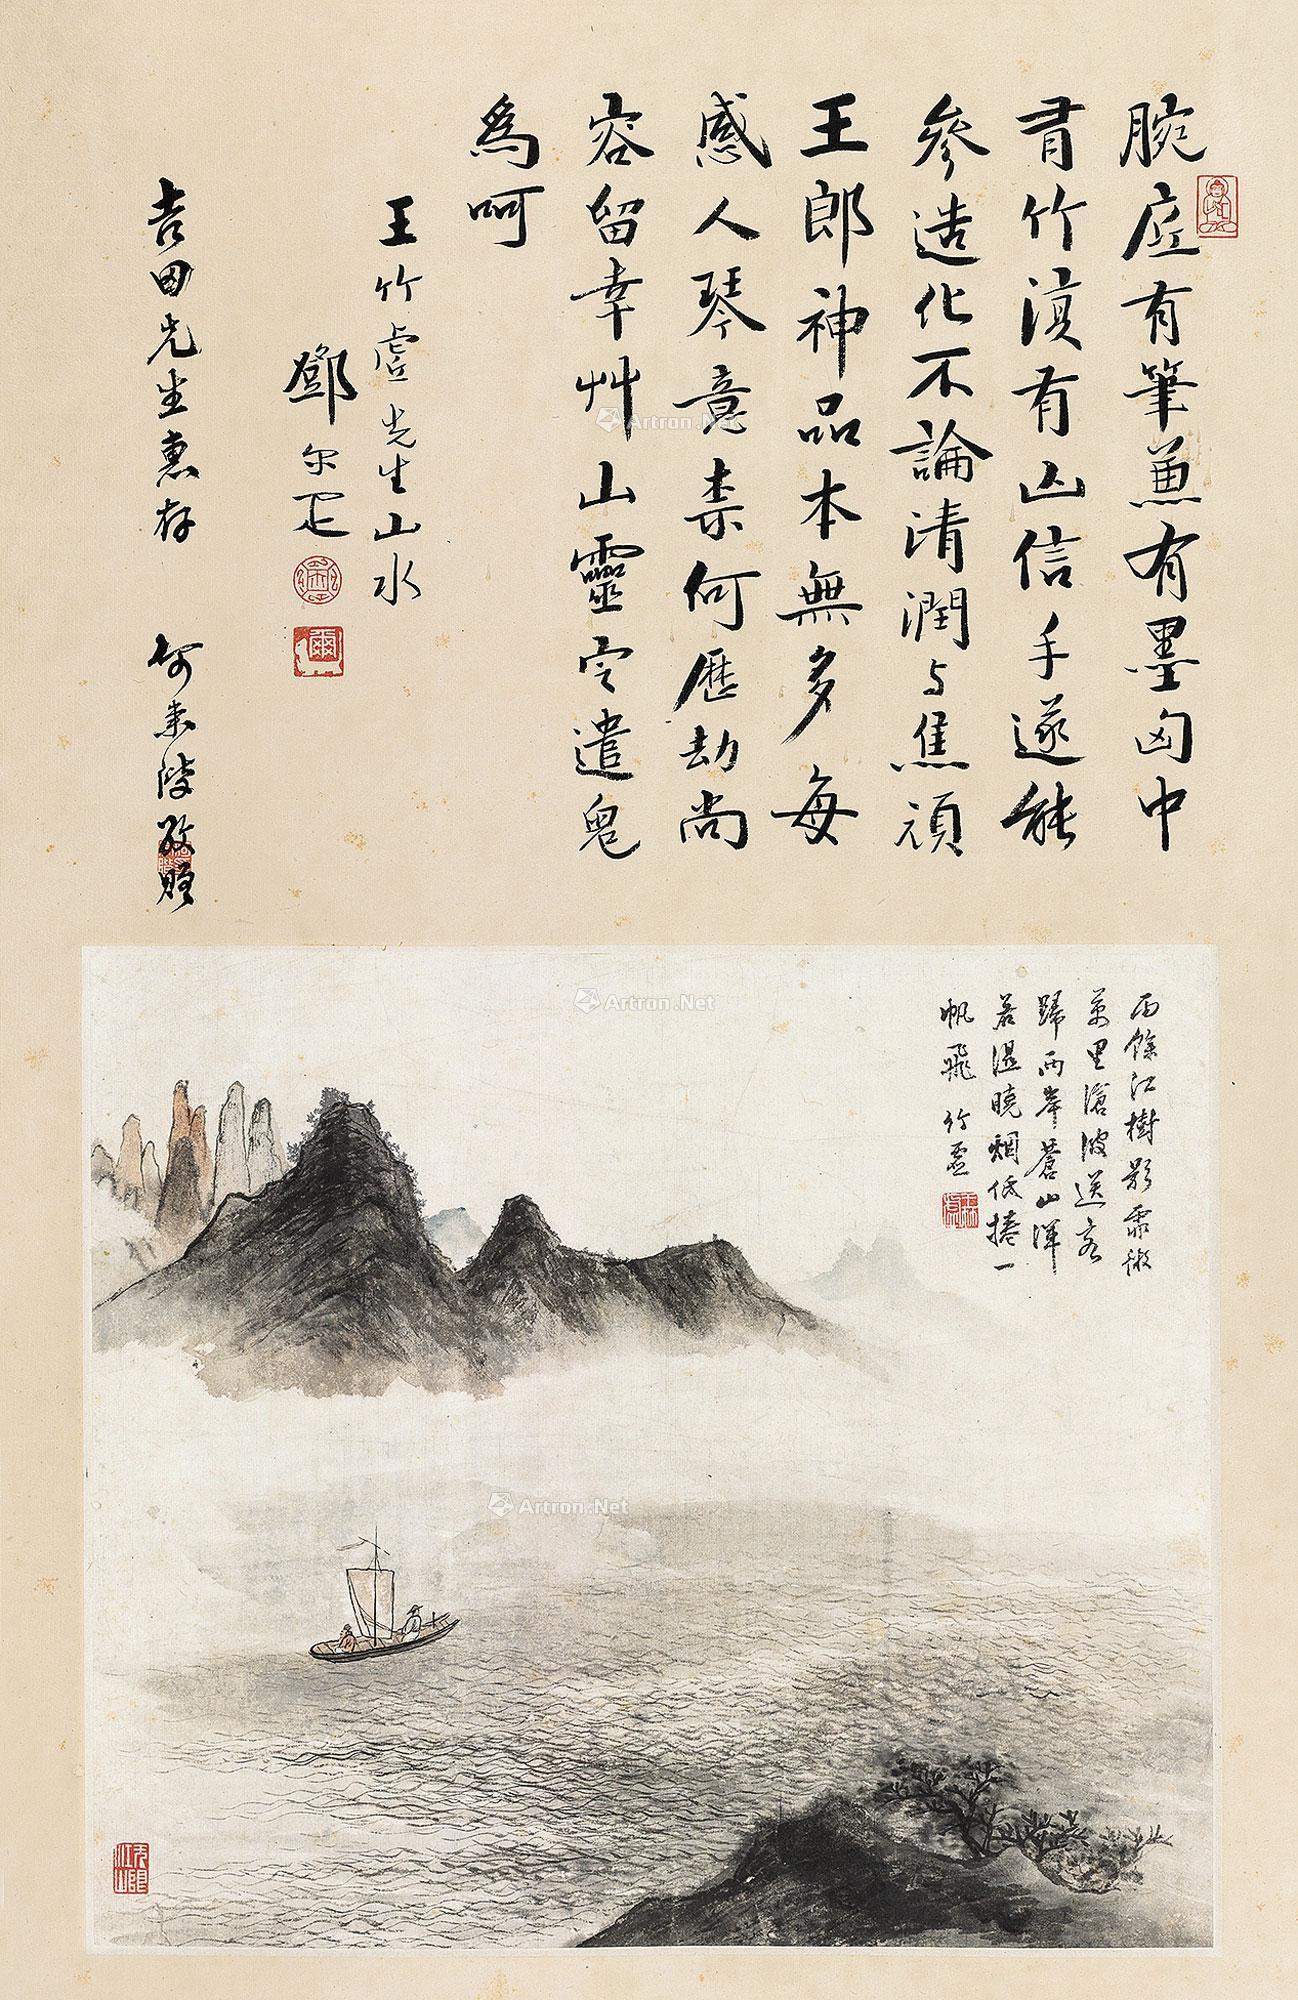 腕虛有筆兼有墨匈中
有竹須有山信手遂能
參造化不論清潤与焦頑
王郎神品本無多每
感人琴意柰何歷劫尚
容留幸艸山靈定遣鬼
為呵
王竹虛先生山水
鄧尔疋
吉田先生惠存
何 陵敬贈
雨餘江樹影霏微
萬里滄波送客
歸兩岸蒼山渾
若濕曉烟低捲一
帆飛 竹虛
Artron.Net
Artron.Net
Artron.Net